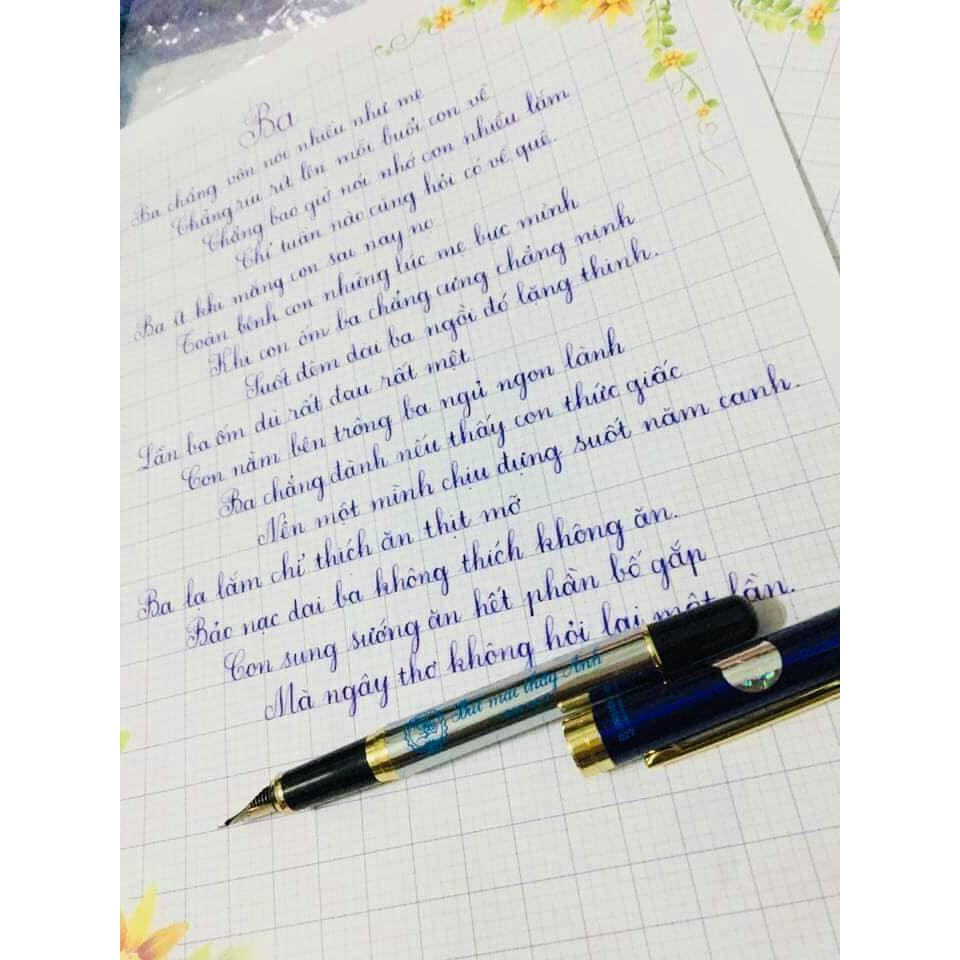 Ba
Ba chẳng vốn nói nhiều như mẹ
Chẳng ríu rít lên mỗi buổi con về
Chẳng bao giờ nói nhớ con nhiều lắm
Chỉ tuần nào cũng hỏi có về quê.
Ba ít khi mắng con sai này nọ
Toàn bênh con những lúc mẹ bực mình
Khi con ốm ba chẳng cưng chẳng nịnh
Suốt đêm dài ba ngồi đó lặng thinh.
Lần ba ốm dù rất đau rất mệt
Con nằm bên trông ba ngủ ngon lành
Ba chẳng đành nếu thấy con thức giấc
Nên một mình chịu đựng suốt năm canh.
Ba lạ lắm chỉ thích ăn thịt mỡ
Bảo nạc dai ba không thích không ăn.
Con sung sướng ăn hết phần bố gắp
Mà ngây thơ không hỏi lại một lần.
Bút mài thầy Ánh
027